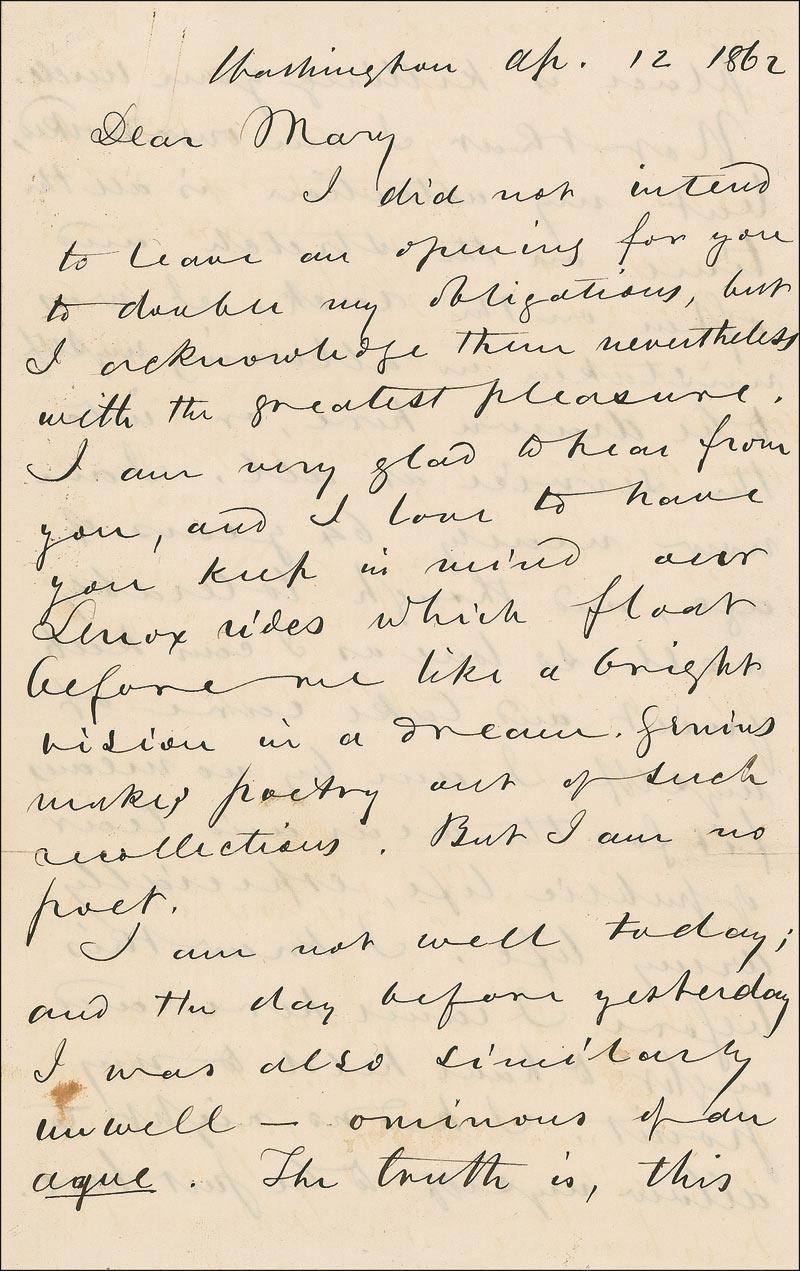 Washington Ap. 12 1862
Dear Mary
I did not intend
to leave an opening for you
to double my obligations, but
I acknowledge them nevertheless
with the greatest pleasure.
I am very glad to hear from
you, and I love to have
you keep in mind our
Lenox rides which float
before me like a bright
vision in a dream. Genius
makes poetry out of such
recollections. But I am no
poet.
I am not well today;
and the day before yesterday
I was also similarly
unwell — ominous of an
ague. The truth is, this